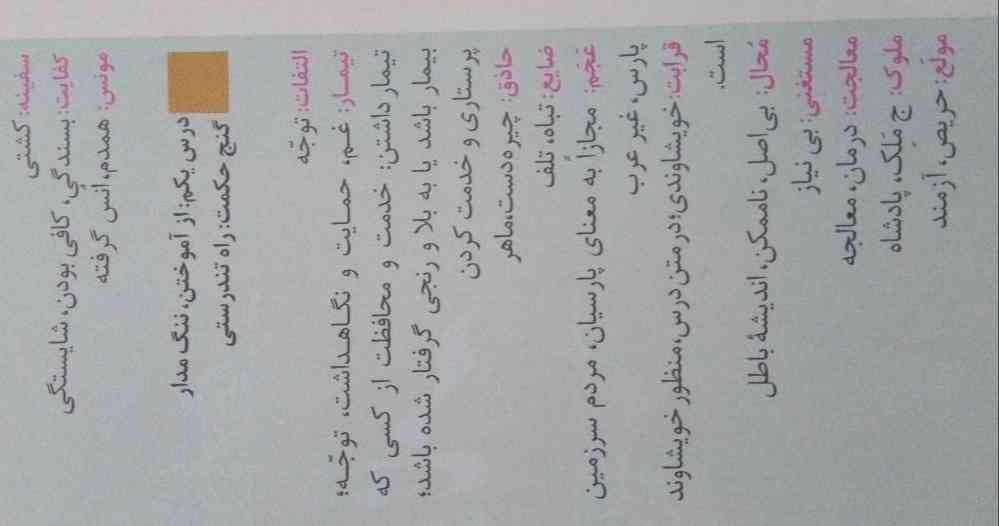 سفینه: کشتی
کفایت: بسندگی، کافی بودن، شایستگی
مونس: همدم، اُنس گرفته
درس یکم: از آموختن، ننگ مدار
گنج حکمت: راه تندرستی
التفات: توجّه
تیمار: غم، حمایت و نگاهداشت، توجّه؛
تیمار داشتن: خدمت و محافظت از کسی که
بیمار باشد یا به بلا و رنجی گرفتار شده باشد؛
پرستاری و خدمت کردن
حاذق: چیره‌دست، ماهر
ضایع: تباه، تلف
عَجَم: مجازاً به معنای پارسیان، مردم سرزمین
پارس، غیر عرب
قرابت: خویشاوندی؛ در متن درس، منظور خویشاوند
است.
مُحال: بی‌اصل، ناممکن، اندیشهٔ باطل
مستغنی: بی نیاز
معالجت: درمان، معالجه
ملوک: جِ مَلِک، پادشاه
مولَع: حریص، آزمند